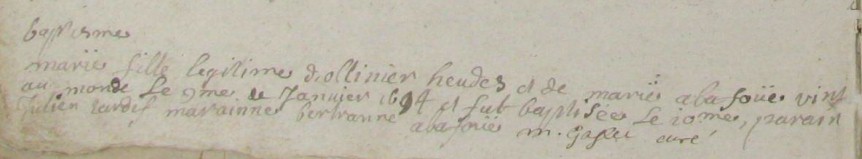 baptisme
marie fille legitime d'ollivier heudes et de marie abafoüe vint
au monde le 9me de Janvier 1694 et fut baptisée le 10me, parain
Julien tardif marainne bertranne abafoüe m. curé